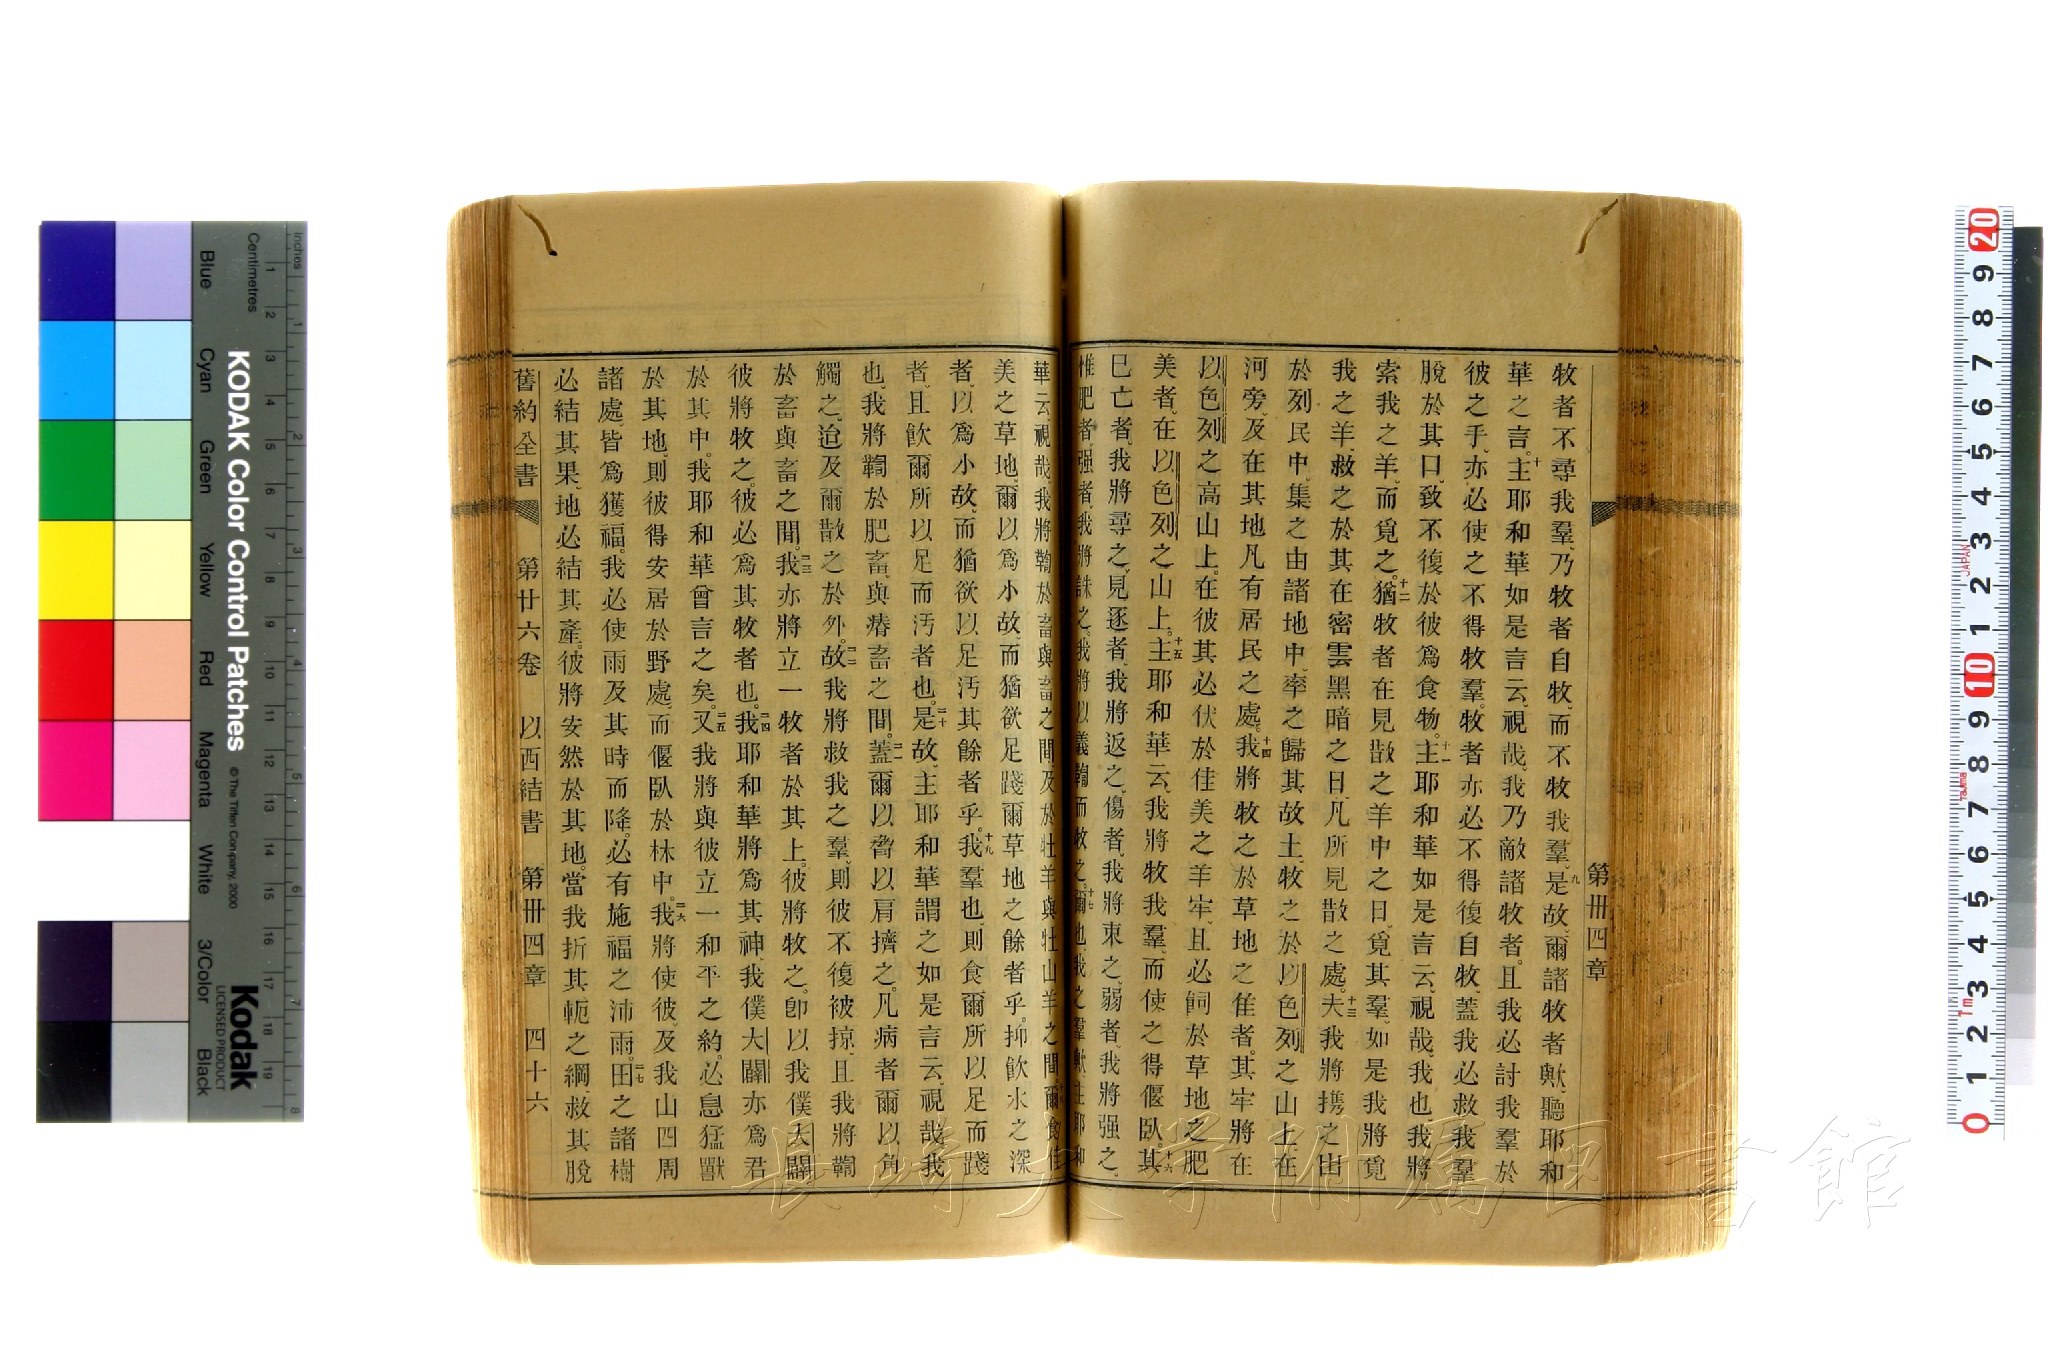 第卅四章
牧者不尋我羣、乃牧者自牧、而不牧我羣、九是故、爾諸牧者歟、聽耶和
華之言。十主耶和華如是言云、視哉、我乃敵諸牧者。且我必討我羣於
彼之手、亦必使之不得牧羣。牧者亦必不得復自牧、蓋我必救我羣
脫於其口、致不復於彼爲食物。十一主耶和華如是言云、視哉、我也我將
索我之羊、而覓之。十二猶牧者在見散之羊中之日、覓其羣、如是我將覓
我之羊、救之於其在密雲黑暗之日、凡所見散之處。十三夫我將攜之由
於列民中、集之由諸地中、率之歸其故土、牧之於以色列之山上、在
河旁、及在其地凡有居民之處。十四我將牧之於草地之佳者。其牢將在
以色列之高山上。在彼其必伏於佳美之羊牢、且必飼於草地之肥
美者、在以色列之山上。十五主耶和華云、我將牧我羣、而使之得偃臥。十六其
已亡者、我將尋之、見逐者、我將返之、傷者、我將束之、弱者、我將强之、
惟肥者、强者、我將誅之。我將以義鞫而牧之。十七爾也、我之羣歟、主耶和
華云、視哉、我將鞫於畜與畜之間、及於牡羊與牡山羊之間。十八爾食佳
美之草地、爾以爲小故、而猶欲足踐爾草地之餘者乎。抑飮水之深
者、以爲小故、而猶欲以足汚其餘者乎。十九我羣也、則食爾所以足而踐
者、且飮爾所以足而汚者也。二十是故、主耶和華謂之如是言云、視哉、我
也、我將鞫於肥畜、與瘠畜之間。二一蓋爾以脅以肩擠之。凡病者爾以角
觸之、迨及爾散之於外。二二故我將救我之羣、則彼不復被掠、且我將鞫
於畜與畜之間。二三我亦將立一牧者於其上。彼將牧之。卽以我僕大闢
彼將牧之。彼必爲其牧者也。二四我耶和華將爲其神、我僕大闢亦爲君
於其中。我耶和華曾言之矣。二五又我將與彼立一和平之約。必息猛獸
於其地、則彼得安居於野處、而偃臥於林中。二六我將使彼、及我山四周
諸處、皆爲獲福。我必使雨及其時而降。必有施福之沛雨。二七田之諸樹
必結其果、地必結其產。彼將安然於其地。當我折其軛之綱、救其脫
舊約全書 第廿六卷 以西結書 第卅四章 四十六
KODAK Color Control Patches
© The Tiffen Company, 2000
Kodak
LICENSED PRODUCT
Inches
Centimetres
Blue
Cyan
Green
Yellow
Red
Magenta
White
3/Color
Black
JAPAN
Tajima
1m
長崎大学附属図書館